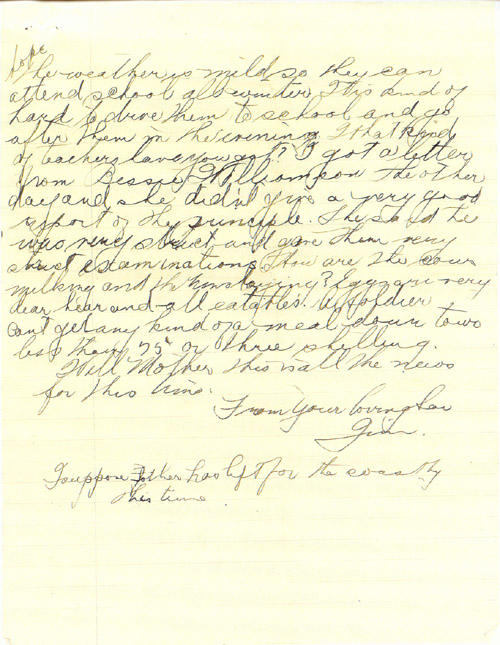 hope
the weather is mild so they can
attend school all winter. It is kind of
hard to drive them to school and go
after them in the evening. What kind
of teachers have you got? I got a letter
from Bessie Williamson the other
day and she didn't give a very good
report of the principle. She said he
was very strict and gave them very
strict examinations. How are the cows
milking and the hens laying? Eggs are very
dear hear and all eatables. A soldier
cant get any kind of a meal down town
less than 75¢ or three shilling.
Well Mother this is all the news
for this time.
From your loving son
Jim.
I suppose Father has left for the coast by
this time